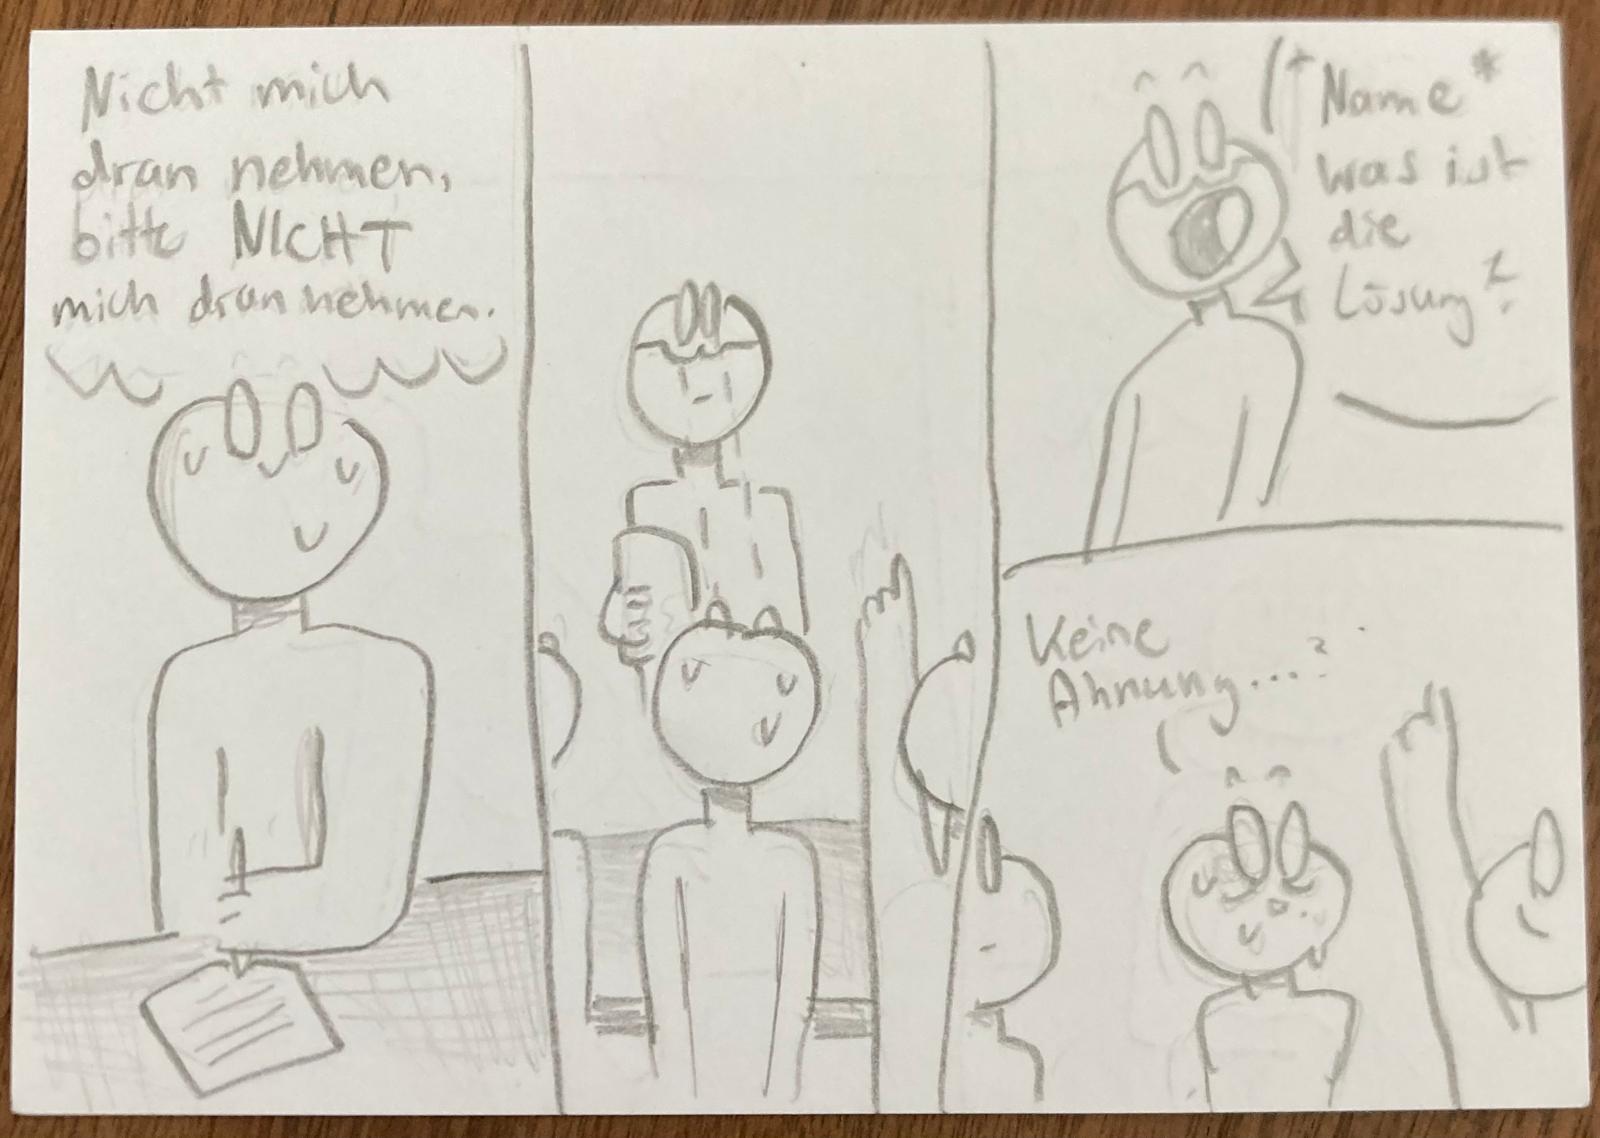 Nicht mich
dran nehmen,
bitte NICHT
mich dran nehmen.
*Name*
was ist
die
Lösung?
Keine
Ahnung...?